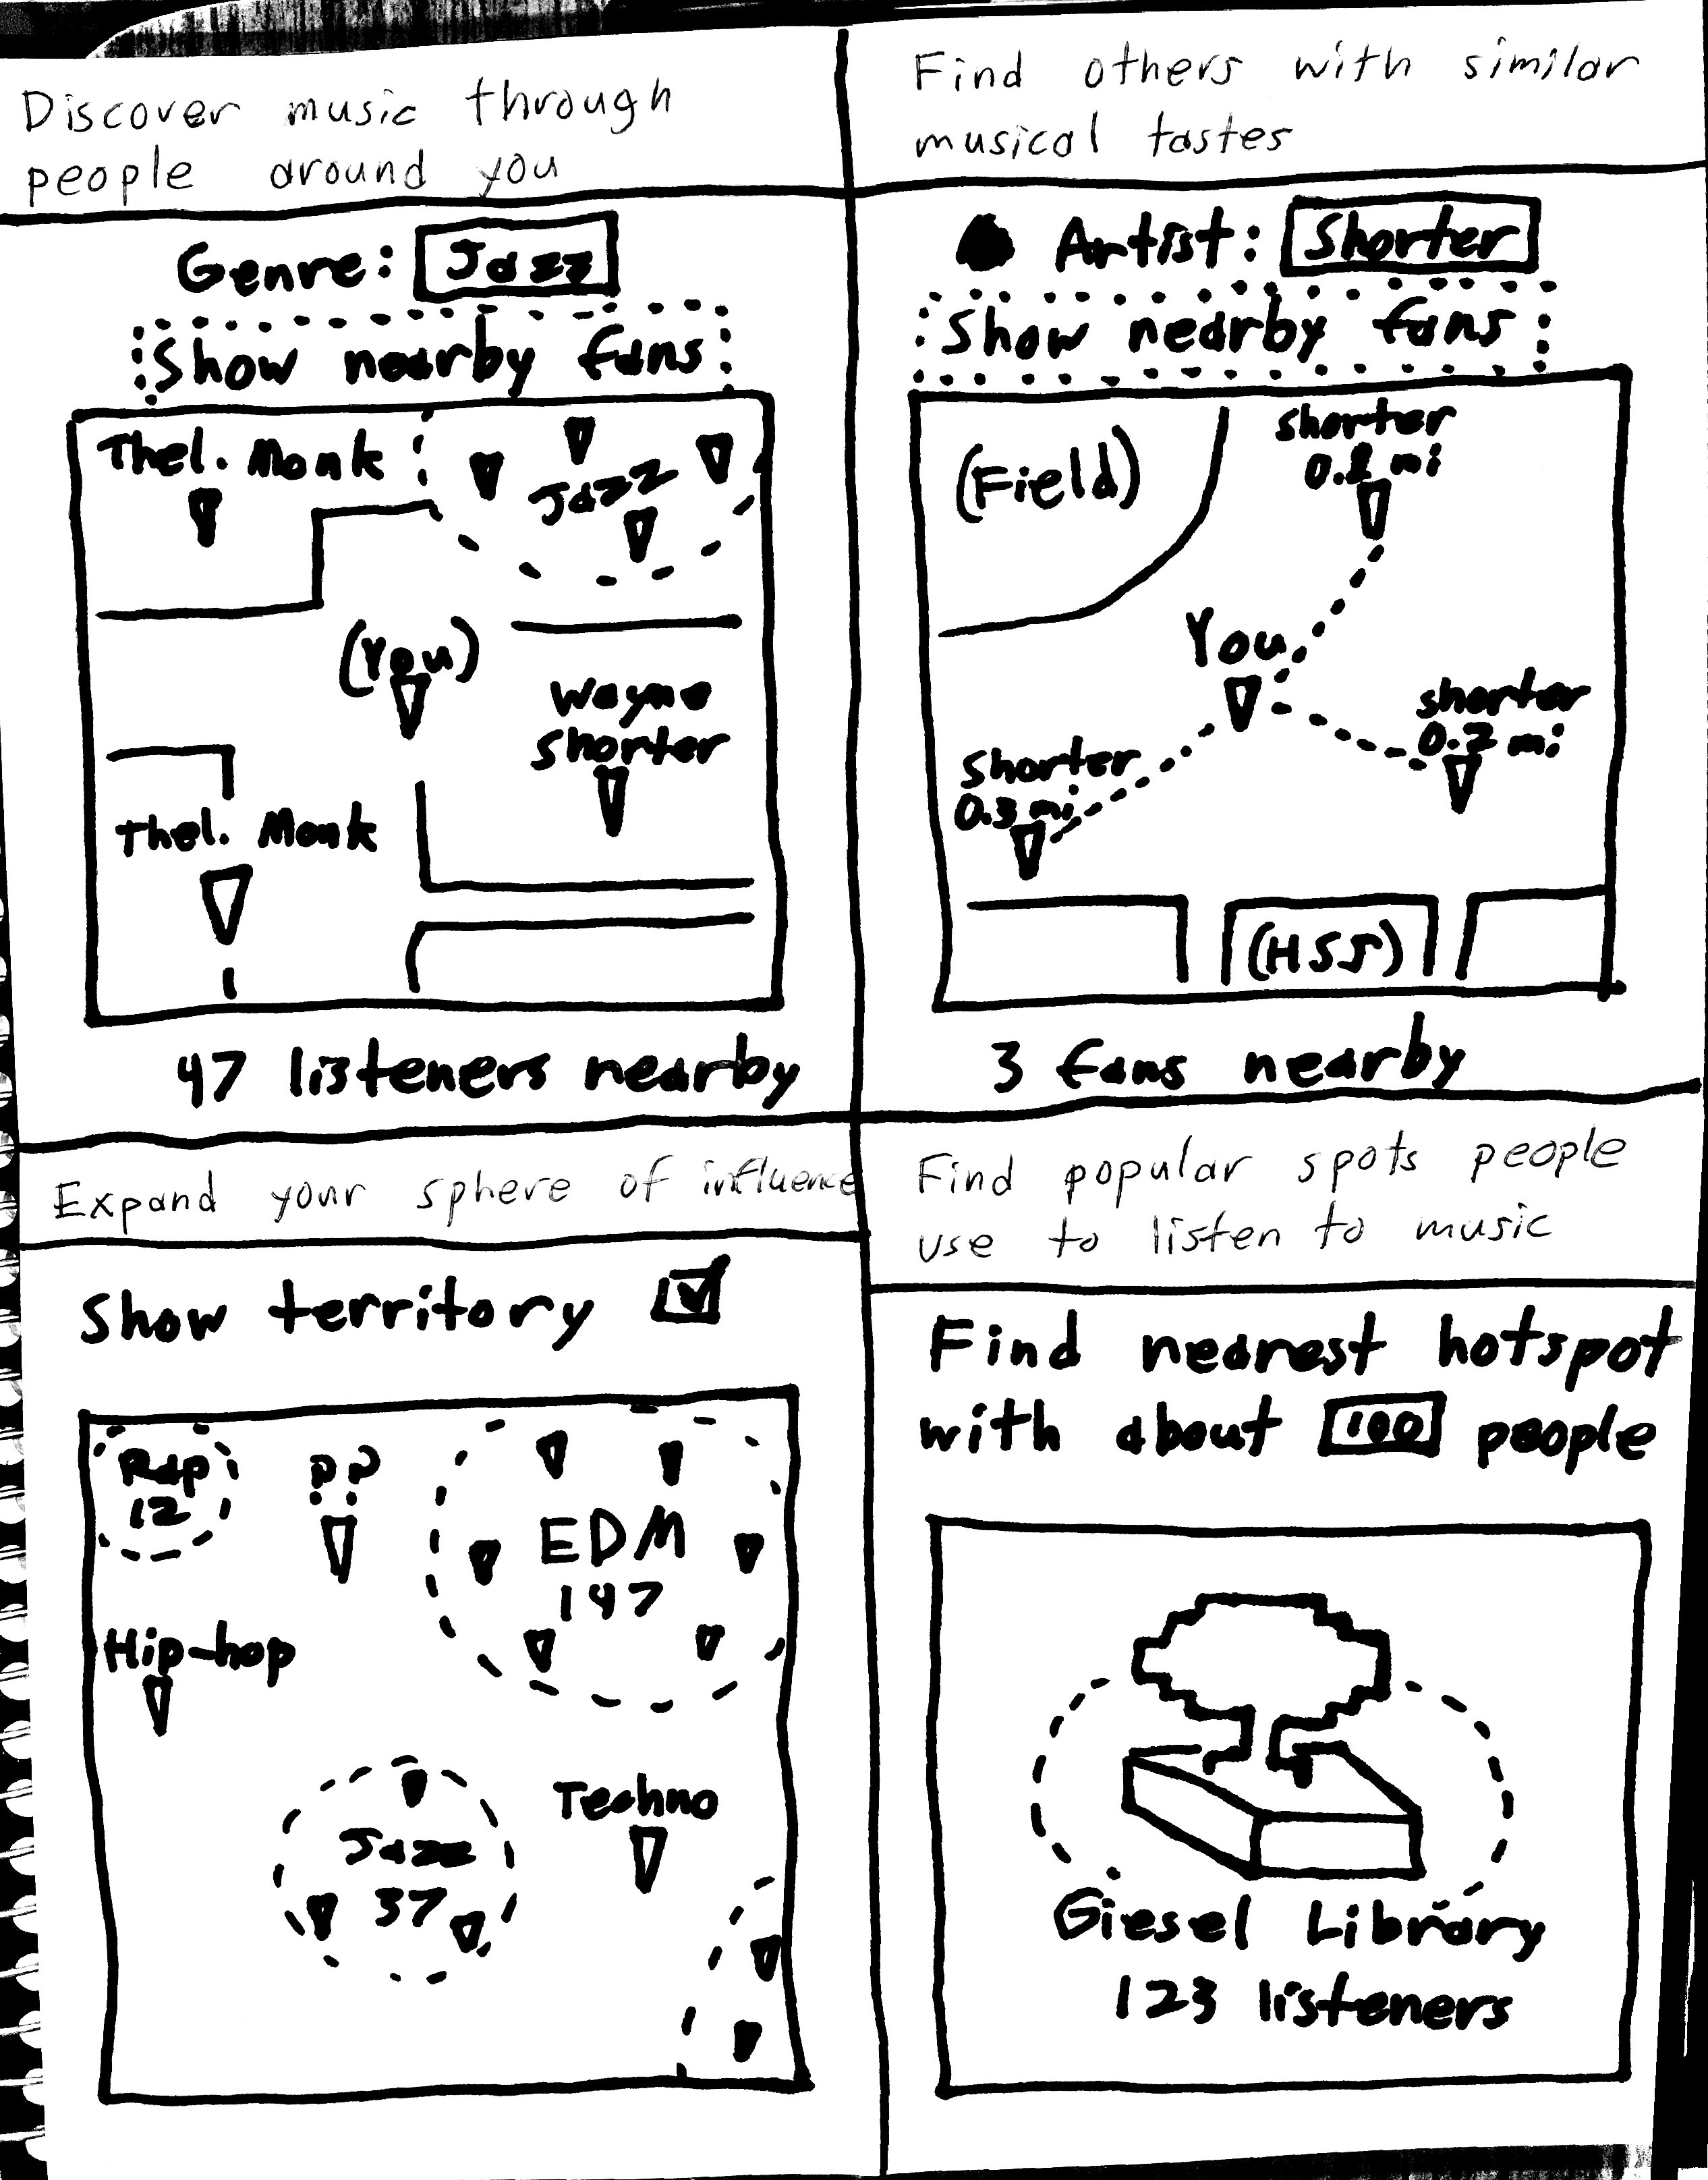 Discover music through
people around you
Genre: Jazz
Show nearby fans
Thel. Monk
Jazz
(You)
Wayne
Shorter
Thel. Monk
47 listeners nearby
Find others with similar
musical tastes
Artist: Shorter
Show nearby fans
(Field)
Shorter
mi
You
shorter
mi
Shorter
0.3 mi
(HSS)
3 fans nearby
Expand your sphere of influence
Show territory
Rap
12
??
EDM
147
Hip-hop
Jazz
37
Techno
Find popular spots people
use to listen to music
Find nearest hotspot
with about 100 people
Giesel Library
123 listeners